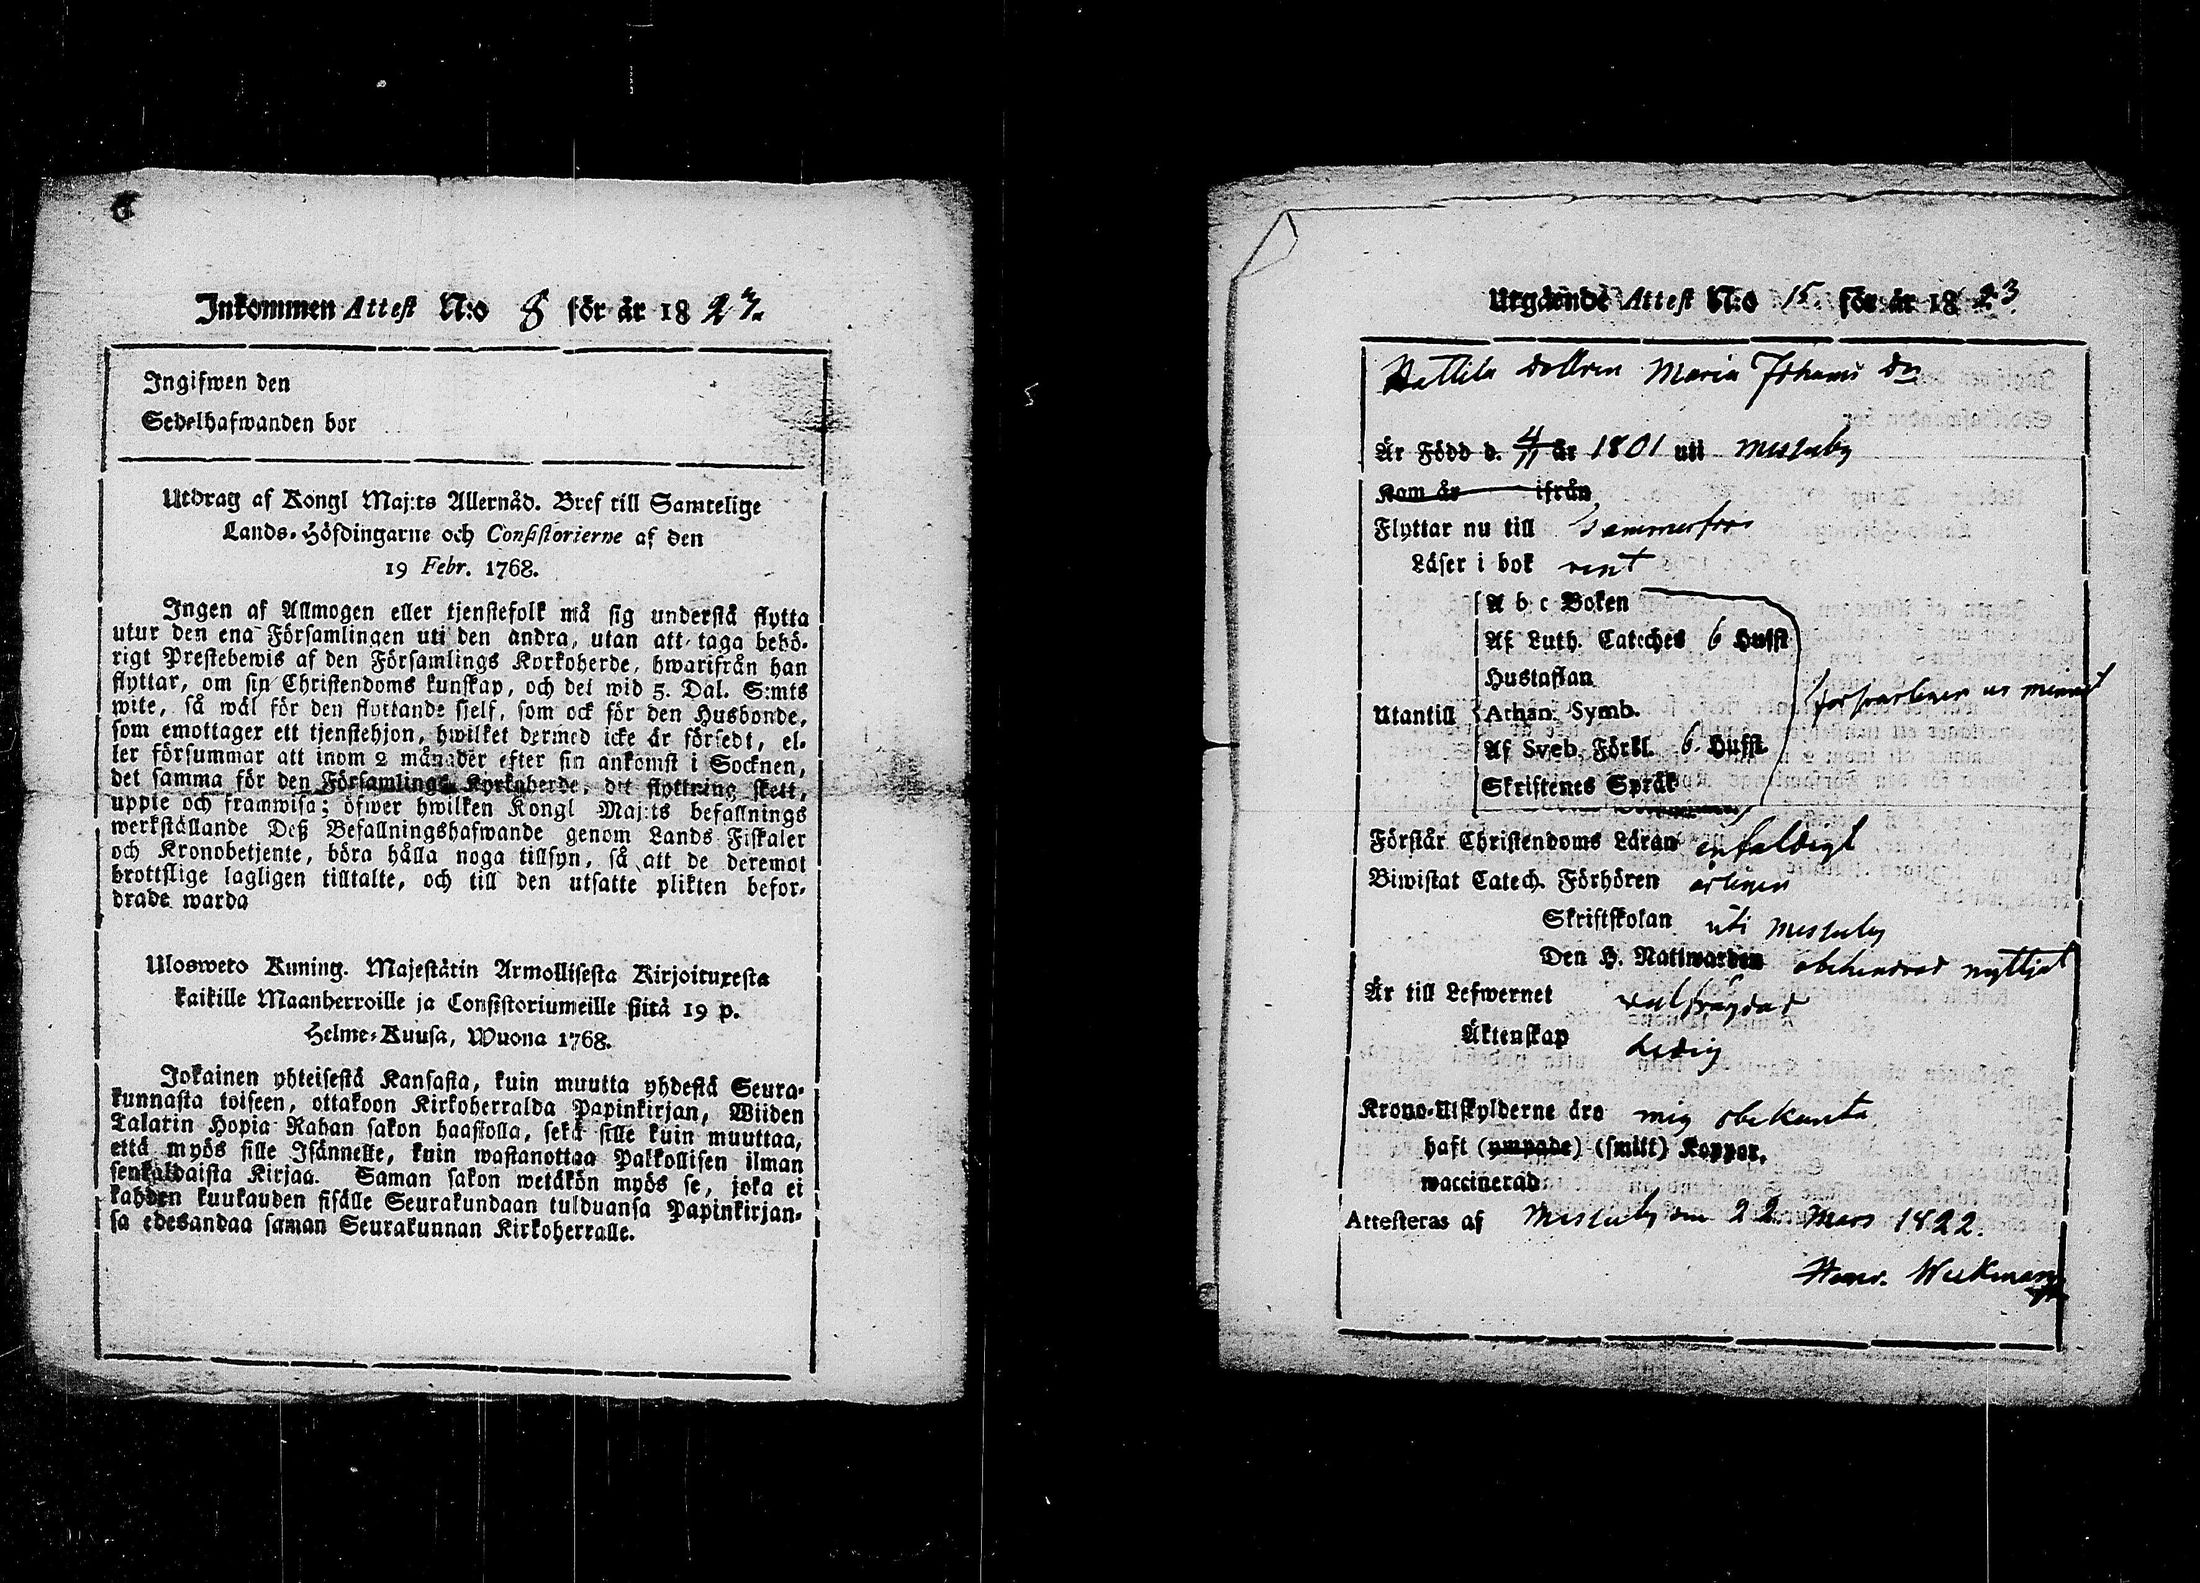 8
Inkommen Attest N:o 8 för år 1823.
Ingifwen den
Sedelhafwanden bor
Utdrag af Kongl Maj:ts Allernåd. Bref till Samtelige
Lands-Höfdingarne och Consistorierne af den
19 Febr. 1768.
Ingen af Allmogen eller tjenstefolk må sig understå flytta
utur den ena Församlingen uti den andra, utan att taga behö-
rigt Prestebewis af den Församlings Kyrkoherde, hwarifrån han
flyttar, om sin Christendoms kunskap, och det wid 5. Dal. S:mts
wite, så wäl för den flyttande sjelf, som ock för den Husbonde,
som emottager ett tjenstehjon, hwilket dermed icke är försedt, el-
ler försummar att inom 2 månader efter sin ankomst i Socknen,
det samma för den Församlings Kyrkoherde, dit flyttning skett,
uppte och framwisa; öfwer hwilken Kongl Maj:ts befallnings
werkställande Deß Befallningshafwande genom Lands Fiskaler
och Kronobetjente, böra hålla noga tillsyn, så att de deremot
brottslige lagligen tilltalte, och till den utsatte plikten befor-
drade warda
Ulosweto Kuning. Majestätin Armollisesta Kirjoituxesta
kaikille Maanherroille ja Consistoriumeille siitä 19 p.
Helme-Kuusa, Wuona 1768.
Jokainen yhteisestä Kansasta, kuin muutta yhdestä Seura-
kunnasta toiseen, ottakoon Kirkoherralda Papinkirjan, Wiiden
Talarin Hopia Rahan sakon haastolla, sekä sille kuin muuttaa,
että myös sille Isännelle, kuin wastanottaa Palkollisen ilman
senkaldaista Kirjaa. Saman sakon wetäkön myös se, joka ei
kahden kuukauden sisälle Seurakundaan tulduansa Papinkirjan-
sa edesandaa saman Seurakunnan Kirkoherralle.
Utgående Attest N:o 15. för år 1823
Maria Johans dr
Är Född d. 4/11 år 1801 uti Messuby
Kom år ifrån
Flyttar nu till Tammerfors
Läser i bok rent
A b c Boken
Af Luth. Cateches 6 Hufst
Hustaflan
Utantill Athan. Symb. försvarligen ur minnet
Af Sveb. Förkl. 6. Hufst.
Skriftenes Språk
Förstår Christendoms Läran enfaldigt
Biwistat Catech. Förhören årligen
Skriftskolan uti Messuby
Den H. Nattwarden obehindrad nyttjat
Är till Lefwernet wälfrägdad
Äktenskap Ledig
Krono-Utskylderne äro mig obekanta
haft (ympade) (smitt) Koppor,
waccinerad
Attesteras af Messuby den 22 Mars 1822.
Henr. Weckman